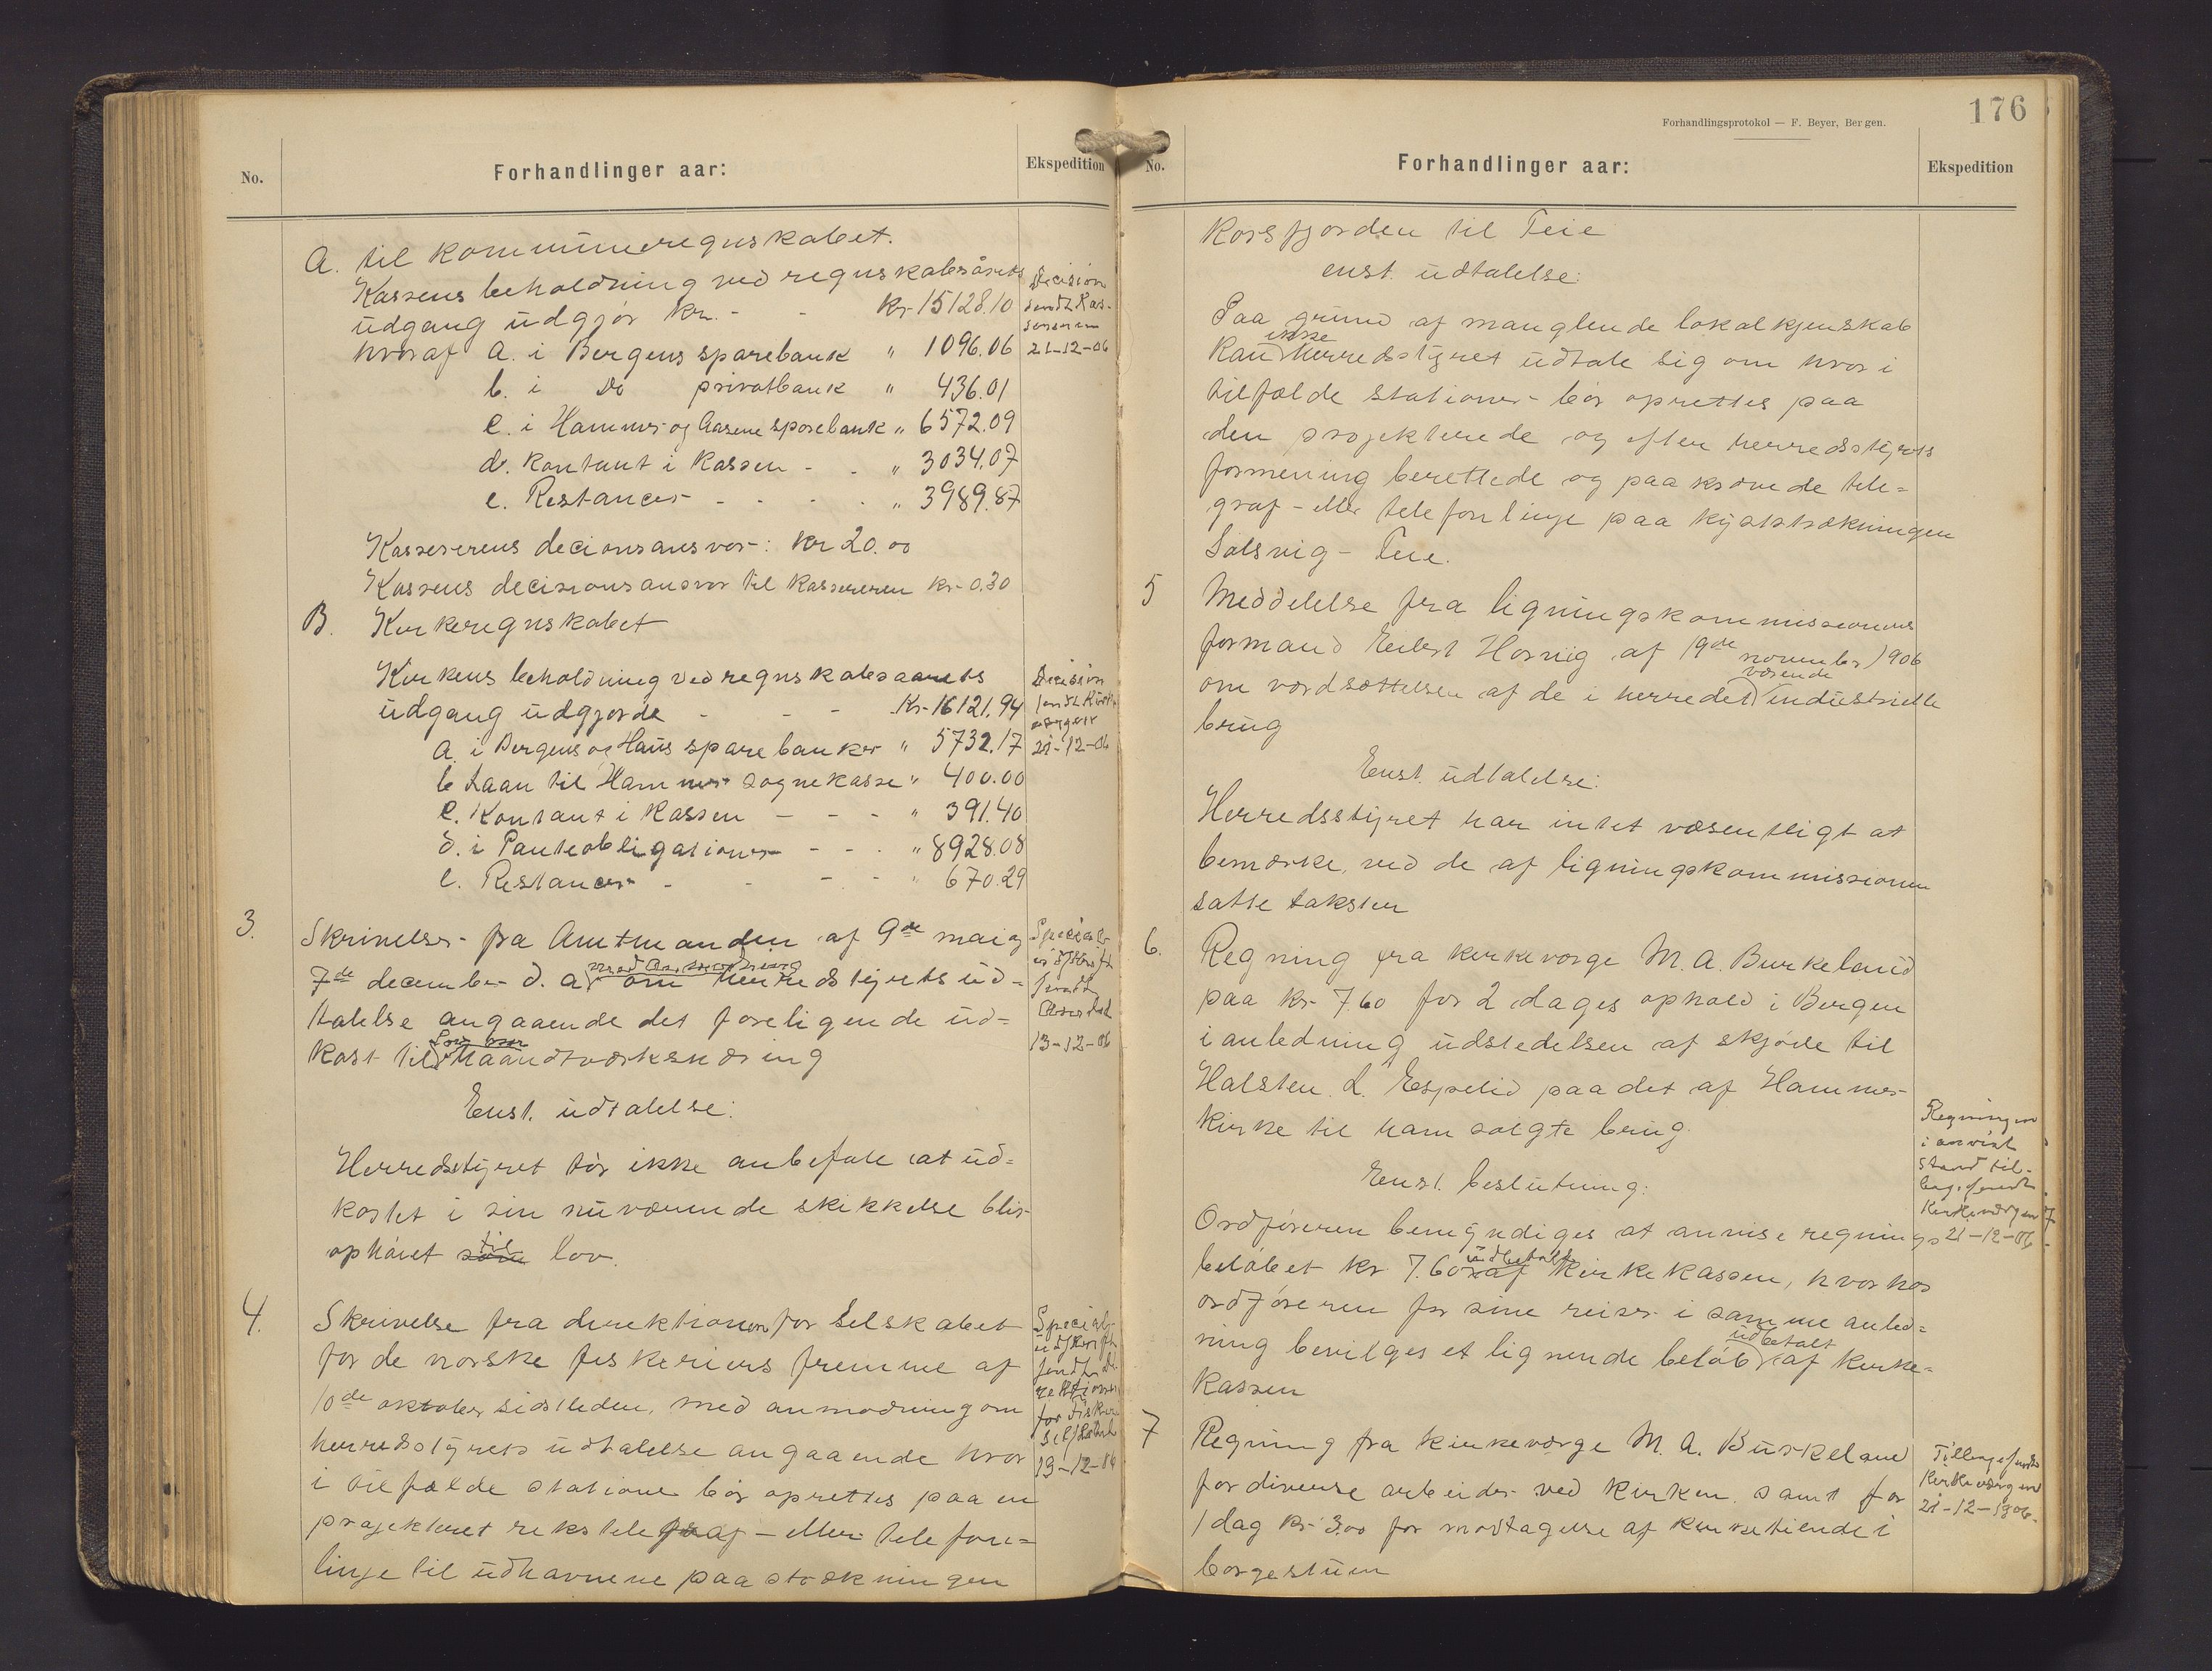 No.
Forhandlinger aar:
Ekspedition
A. til kommuneregnskabet.
Kassens beholdning ved regnskabsårets
udgang udgjør kr. - - kr 15128.10
hvoraf a. i Bergens sparebank " 1096.06
b. i Do privatbank " 436.01
c. i Hammer og Aasene sparebank " 6572.09
d. kontant i kassen - - " 3034.07
e. Restancer - - - - " 3989.87
Decision
sendt Kas-
sereren
21-12-06
Kassererens decionsansvar: kr 20.00
Kassens decisionsansvar til kassereren kr 0.30
B. Kirkeregnskabet
Kirkens beholdning ved regnskabsaarets
udgang udgjorde - - - Kr 16121.94
a. i Bergens og Haus sparebanker " 5732.17
b Laan til Hammer sognekasse " 400.00
c. Kontant i kassen - - - " 391.40
d. i Panteobligationer - - - " 8928.08
e. Restancer - - - - " 670.29
Decision
sendt Kirke-
værgen
21-12-06
3.
Skrivelser fra Amtmanden af 9de mai og
7de december d. a. med anmodning om herredstyrets ud=
talelse angaaende det foreligende ud=
kast til Lov om haandtværksnæring
Special-
udskrift
sendt
Amtet
13-12-06
Enst. udtalelse:
Herredstyret tør ikke anbefale at ud=
kastet i sin nuværende skikkelse blir
ophøiet som til lov.
4.
Skrivelse fra direktionen for Selskabet
for de norske fiskeriers fremme af
10de oktober sidstleden, med anmodning om
herredstyrets udtalelse angaaende hvor
i tilfælde stationer bør oprettes paa en
projekteret rikstelegraf - eller telefon=
linje til udhavnene paa strækningen
Special-
udskrift
sendt Di-
rektionen
for Fiskeri
selskabet
13-12-06
Forhandlingsprotokol — F. Beyer, Bergen.
176
No.
Forhandlinger aar:
Ekspedition
Korsfjorden til Feie
enst. udtalelse:
Paa grund af manglende lokalkjenskab
kan ikke herredsstyret udtale sig om hvor i
tilfælde stationer bør oprettes paa
den projekterede og efter herredsstyrets
formening berettede og paakrævede tele=
graf - eller telefonlinje paa kyststrækningen
Solsvig - Feie.
5
Meddelelse fra ligningskommissionens
formand Eilert Horvig af 19de november 1906
om værdsættelsen af de i herredet værende industrielle
brug
Enst. udtalelse:
Herredsstyret har intet væsentligt at
bemærke ved de af ligningskommissionen
satte takster
6.
Regning fra kirkeværge M. A. Burkeland
paa kr 7.60 for 2 dages ophold i Bergen
i anledning udstedelsen af skjøde til
Halsten L. Espelid paa det af Hammer
kirke til ham solgte brug.
Enst. beslutning:
Ordføreren bemyndiges at anvise regnings
beløbet kr. 7.60 udbetalt af kirkekassen, hvorhos
ordføreren for sine reiser i samme anled=
ning bevilges et lignende beløb udbetalt af kirke=
kassen
Regningen
i anvist
stand til-
bagesendt
Kirkeværgen
21-12-06
7
Regning fra kirkeværge M. A. Burkeland
for diverse arbeider ved kirken samt for
1 dag kr 3.00 for modtagelse af kirketiende i
borgestuen
Tilbagesendt
Kirkeværgen
21-12-1906.